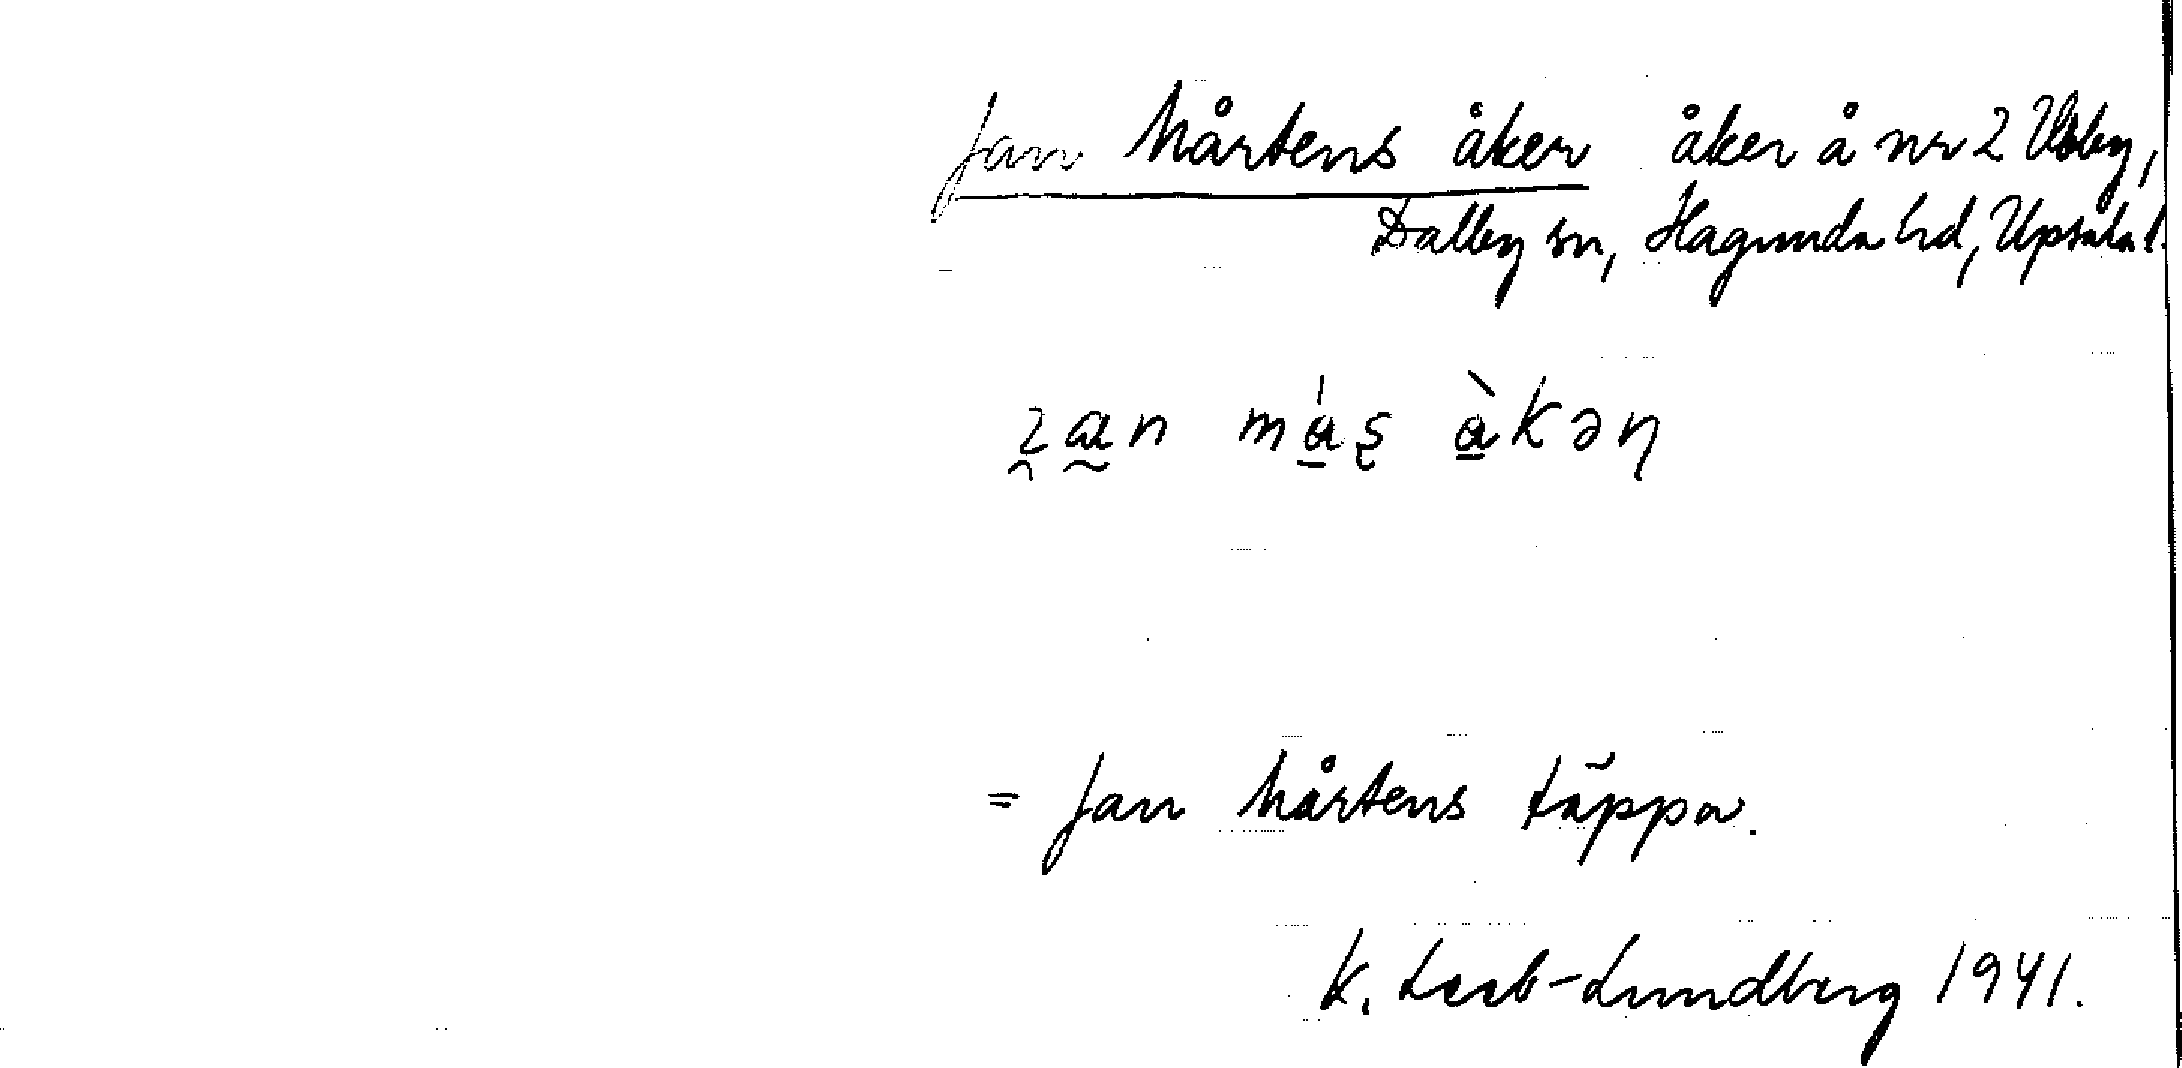 Jan Mårtens åker åker å nr 2 Visby,
Dalby sn, Hagunda hd, Upsala l.
ɿan más àkəꞃ
= Jan Mårtens täppa.
K. Leeb-Lundberg 1941.